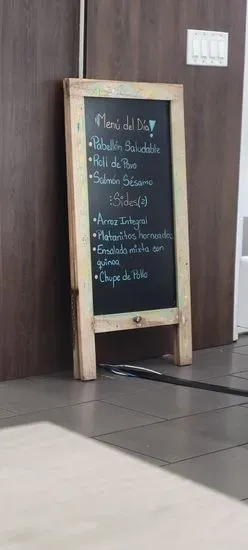 ¡Menú del Día!
• Pabellón Saludable
• Roll de Pavo
• Salmón Sésamo
:Sides(2)
• Arroz Integral
• Platanitos horneados
• Ensalada mixta con
quinoa
• Chupe de Pollo